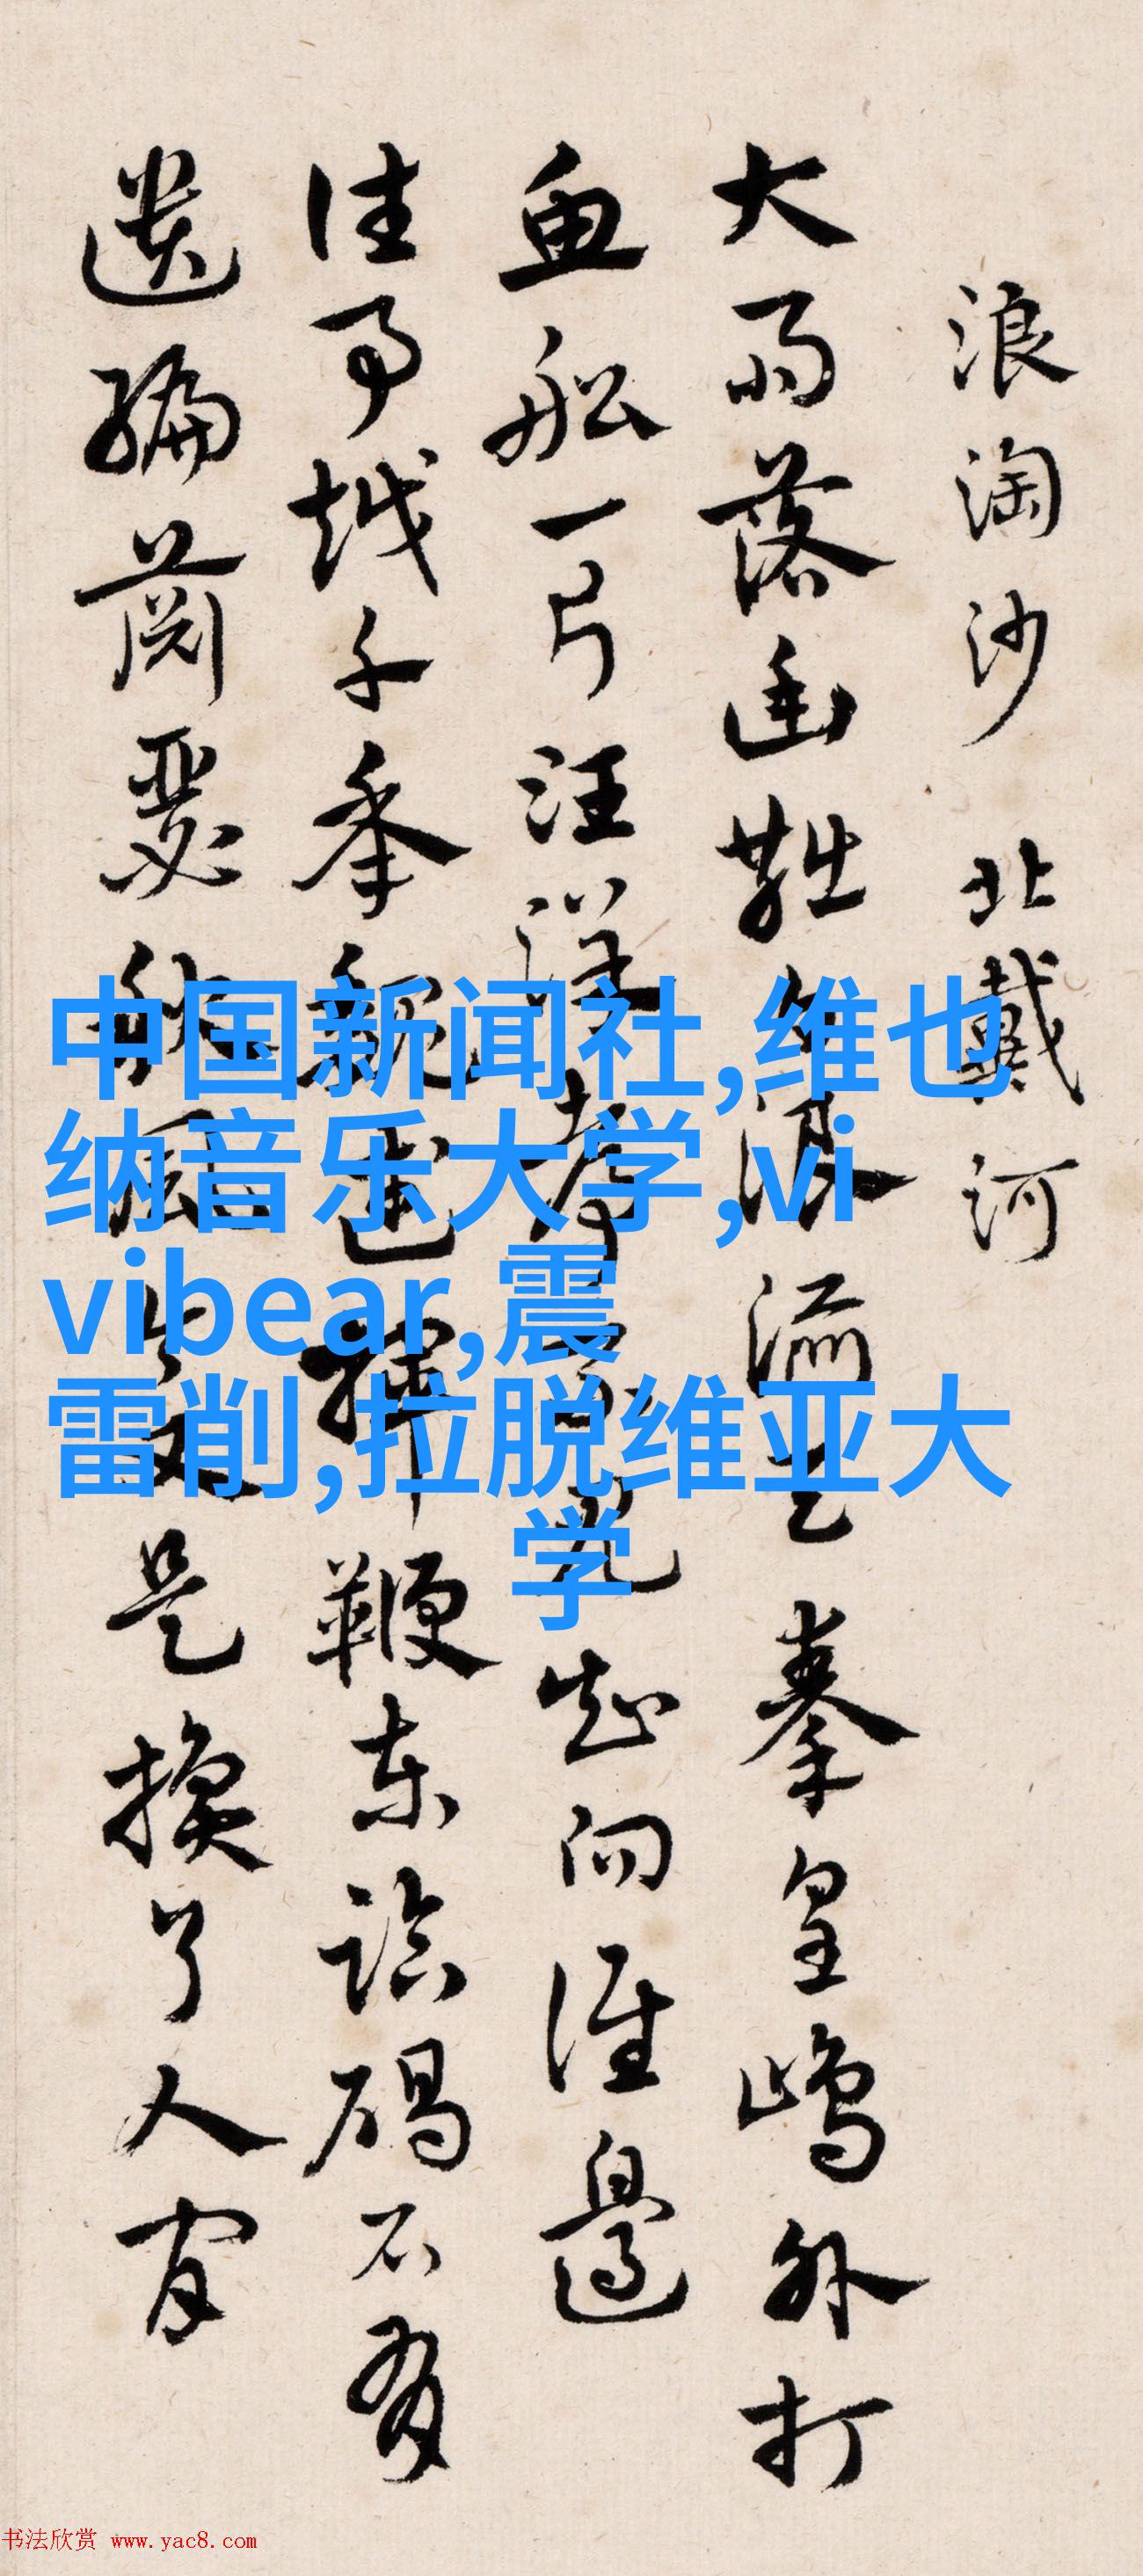 浪淘沙 北戴河
大雨落幽燕白浪滔天秦皇嶋外打
魚船一片汪洋都不見知向誰邊
往事越千年魏武揮鞭東臨碣石有
遺編蕭瑟秋風今又是換了人間
中国新闻社,维也
纳音乐大学,vi
vibear,震
雷削,拉脱维亚大
学
书法欣赏 www.yac8.com